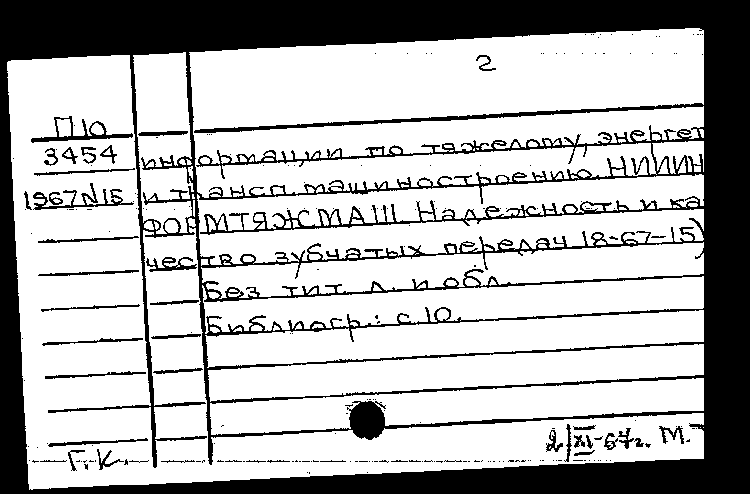 2
П10
3454 информации по тяжелому, энергет
1967N15 и трансп. машиностроению. НИИИН
ФОРМТЯЖМАШ. Надежность и ка
чество зубчатых передач 18-67-15)
Без тит. л. и обл.
Библиогр.: с. 10.
2/XI-67г. М.
Г.К.